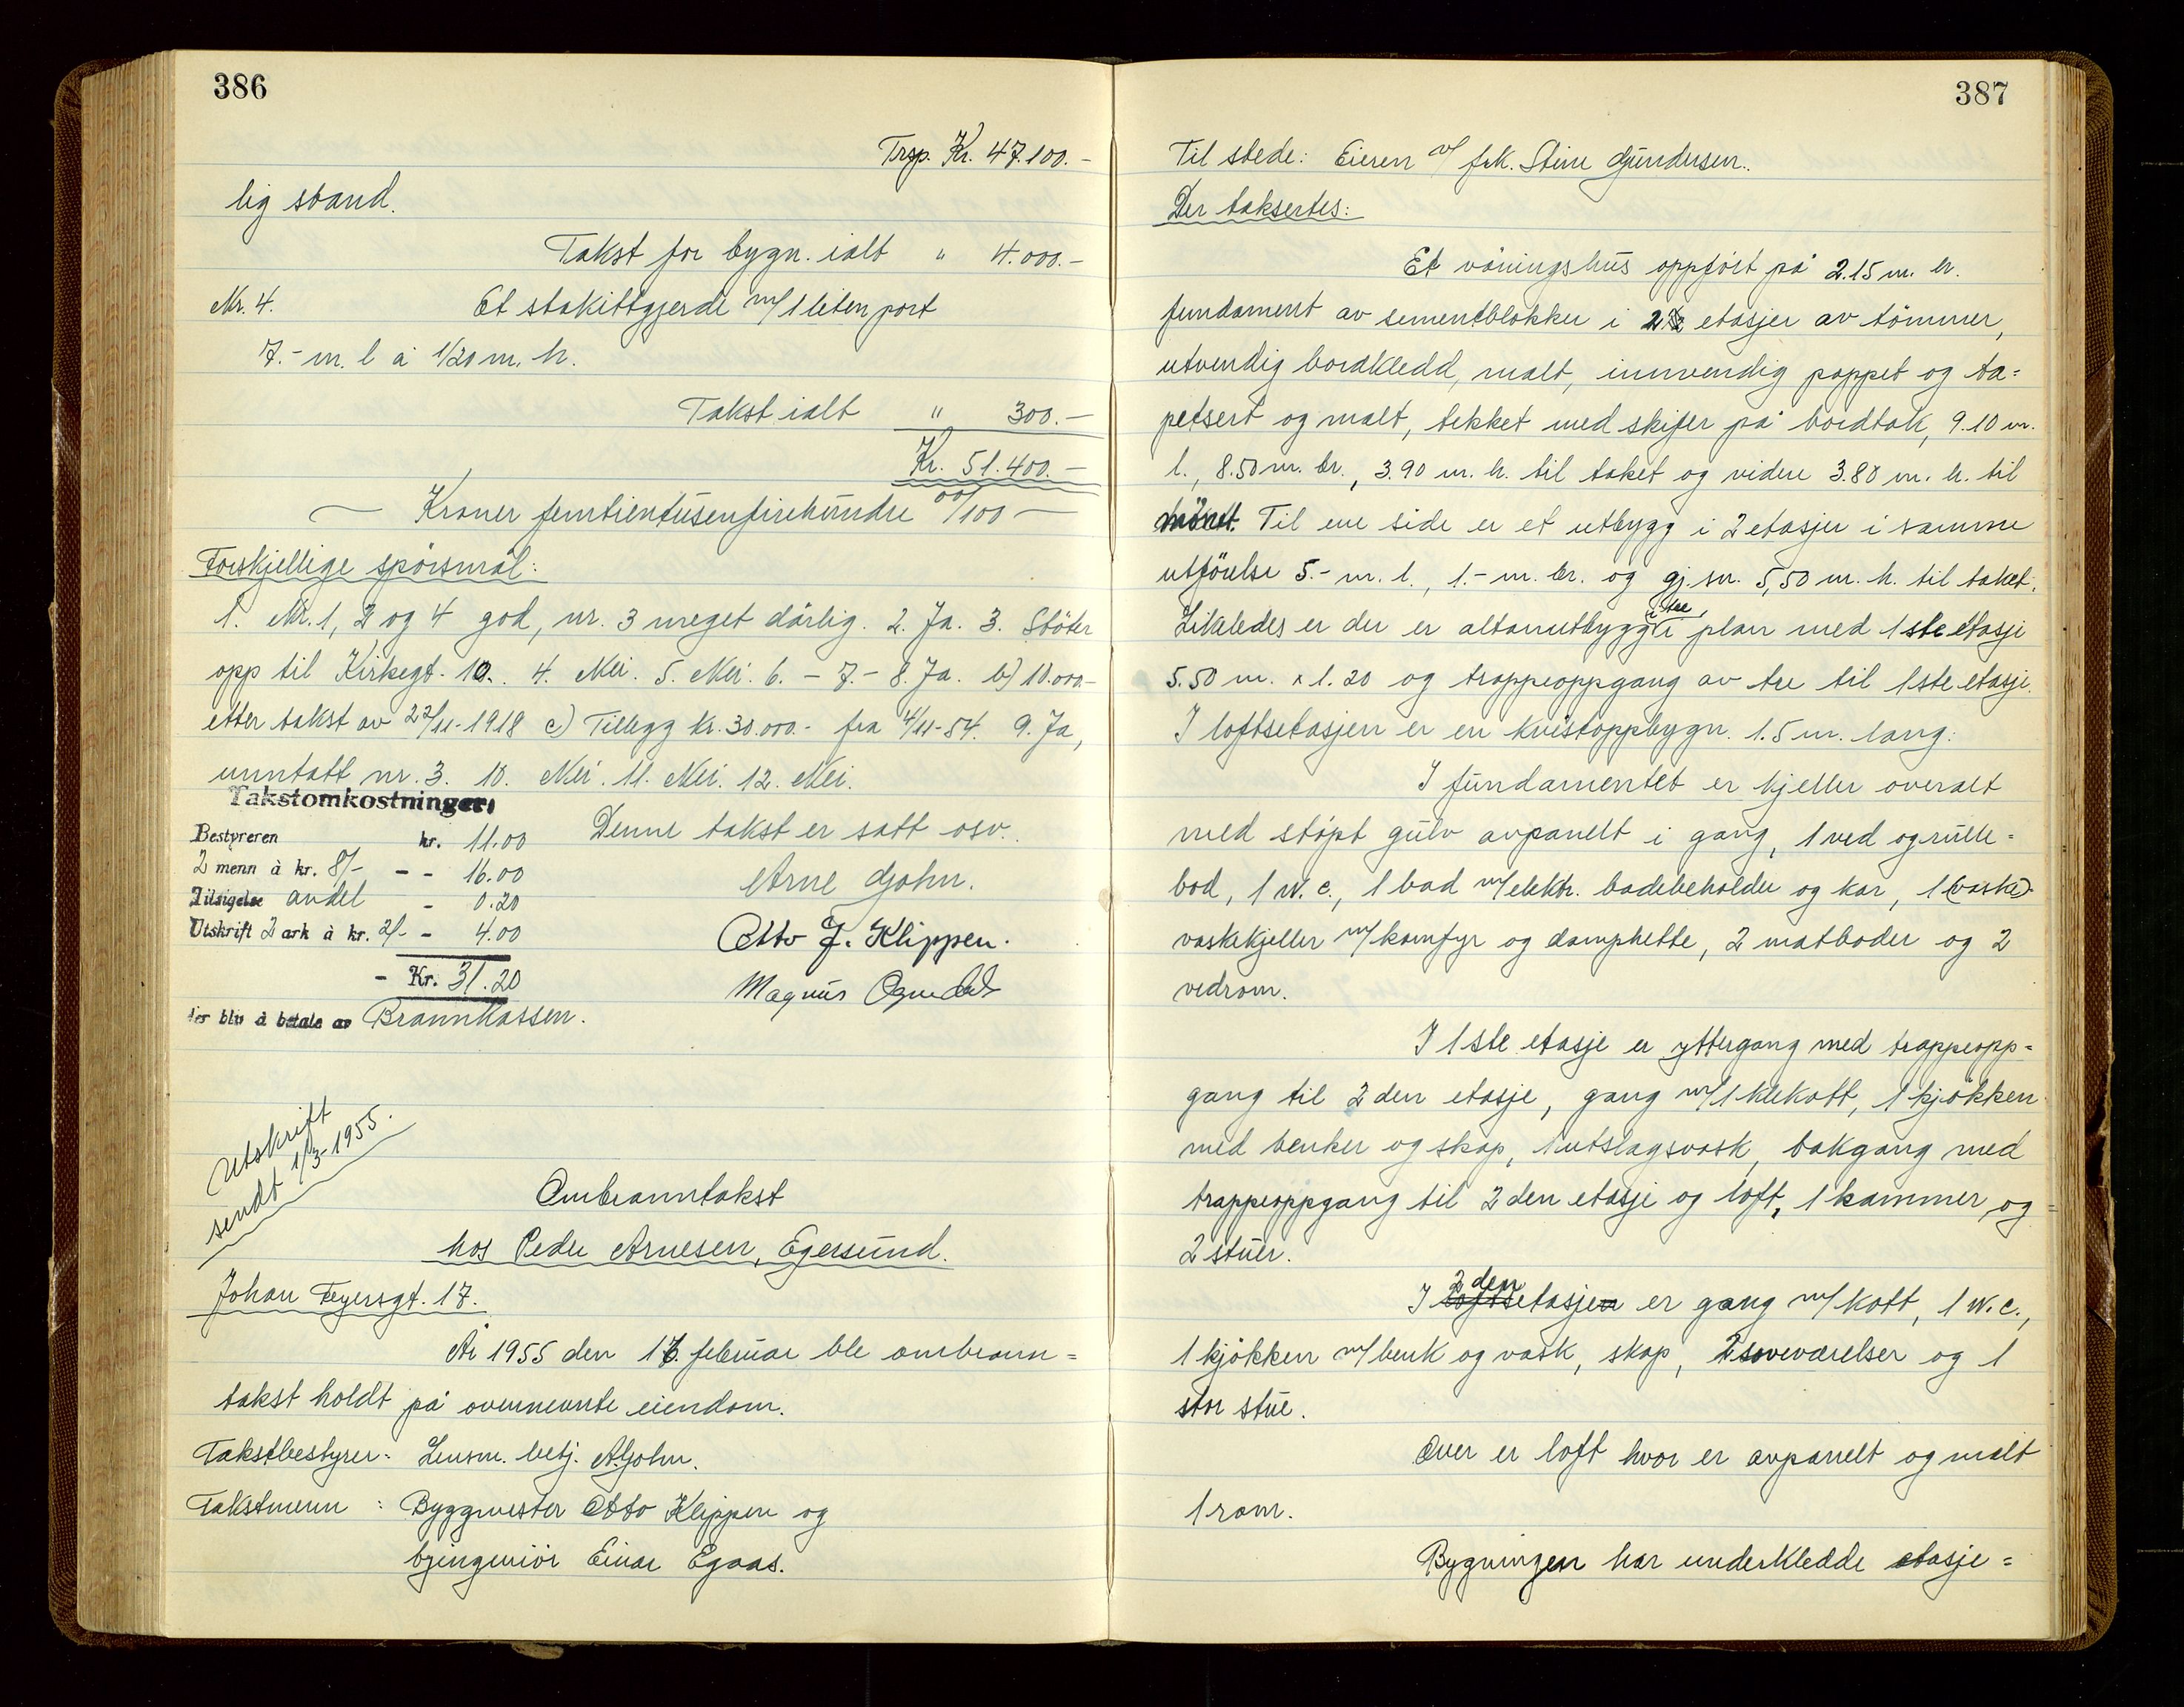 386
Trsp. Kr. 47.100.-
lig stand.
Takst for bygn. ialt " 4.000.-
Nr. 4. Et stakittgjerde m/1 liten port
7.- m. l à 1/20 m. h.
Takst ialt " 300.-
Kr. 51.400.-
— Kroner femtientusenfirehundre 00/100 —
Forskjellige spörsmål:
1. Nr. 1, 2 og 4 god, nr. 3 meget dårlig. 2. Ja. 3. Stöter
opp til Kirkegt. 10. 4. Nei. 5. Nei. 6. - 7.- 8. Ja. b) 10.000.-
etter takst av 22/11-1918 c) Tillegg kr. 30.000.- fra 4/11-54. 9. Ja,
unntatt nr. 3. 10. Nei. 11. Nei. 12. Nei.
Takstomkostninger:
Bestyreren kr. 11.00 Denne takst er satt osv.
2 menn à kr. 8/- - - 16.00 Arne Gjohn.
Tilsigelse andel - 0.20
Utskrift 2 ark à kr. 2/- - 4.00 Otto J. Klippen.
- Kr. 31.20 Magnus
der blir å betale av Brannkassen.
Utskrift
sendt 1/3-1955.
Ombranntakst
hos Peder Arnesen, Egersund.
Johan Feyersgt. 17.
År 1955 den 16. februar ble ombrann=
takst holdt på overnevnte eiendom.
Takstbestyrer: Lensm. betj. A. Gjohn.
Takstmenn : Byggmester Otto Klippen og
byingeniör Einar Egaas.
387
Til stede: Eieren v/ frk. Stine Gundersen.
Der taksertes:
Et våningshus oppfört på 2.15 m. h.
fundament av sementblokker i 2 etasjer av tömmer,
utvendig bordkledd, malt, innvendig pappet og ta=
petsert og malt, tekket med skifer på bordtak, 9.10 m.
l., 8.50 m. br., 3.90 m. h. til taket og videre 3.80 m. h. til
mönet. Til ene side er et utbygg i 2 etasjer i samme
utförelse 5.- m. l., 1.- m. br. og gj.sn. 5,50 m. h. til taket.
Likeledes er der er altanutbygg i tre, i plan med 1ste etasje
5.50 m. x 1.20 og trappeoppgang av tre til 1ste etasje.
I loftsetasjen er en kvistoppbygn. 1.5 m. lang.
I fundamentet er kjeller overalt
med stöpt gulv avpanelt i gang, 1 ved og rulle=
bod, 1 w.c., 1 bad m/elektr. badebeholder og kar, 1 (vaske)
vaskekjeller m/komfyr og damphette, 2 matboder og 2
vedrom.
I 1ste etasje er yttergang med trappeopp=
gang til 2den etasje, gang m/1 klekott, 1 kjökken
med benker og skap, 1 utslagsvask, bakgang med
trappeoppgang til 2den etasje og loft, 1 kammer og =
2 stuer.
I 2den loftsetasjen er gang m/kott, 1 w.c.,
1 kjökken m/benk og vask, skap, 2 soveværelser og 1
stor stue.
Over er loft hvor er avpanelt og malt
1 rom.
Bygningen har underkledde etasje=